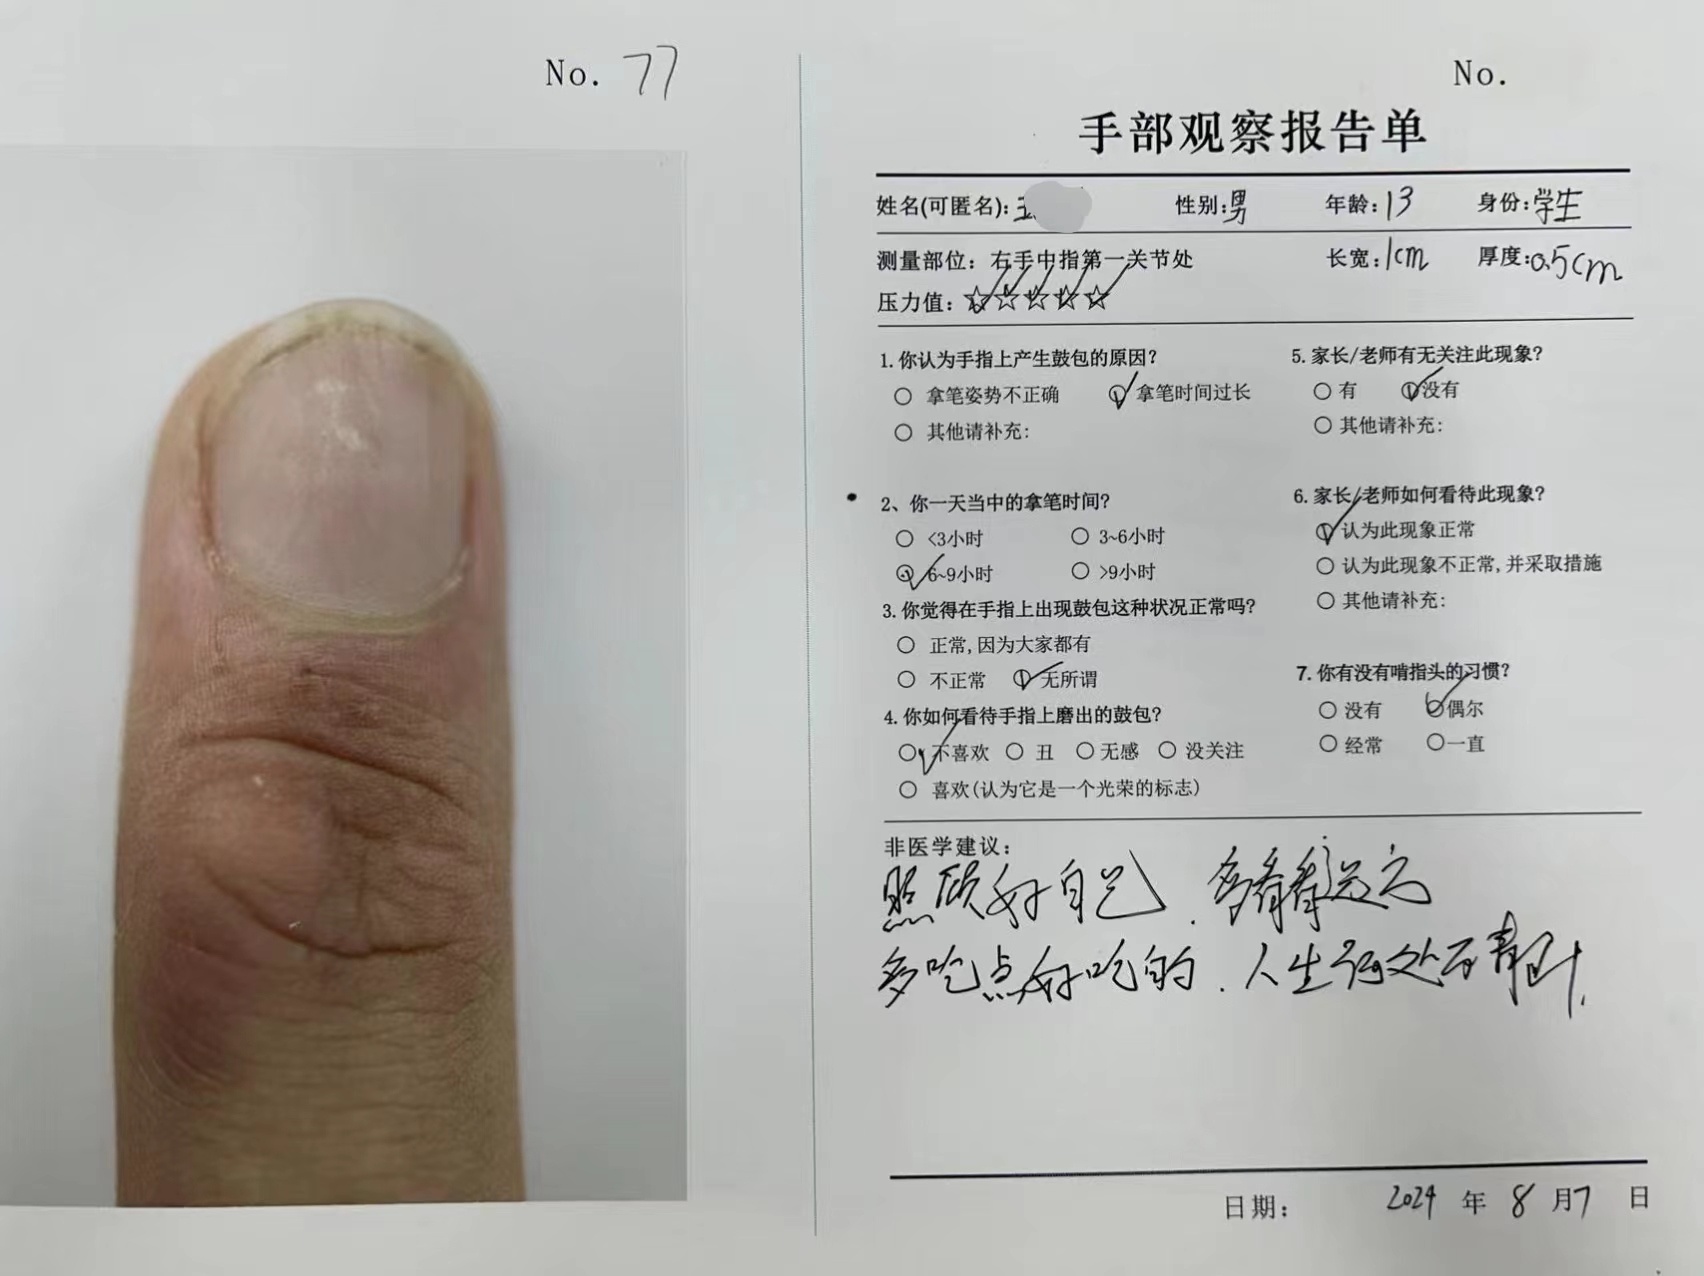 No. 77
No.
手部观察报告单
姓名(可匿名): 性别:男 年龄:13 身份:学生
测量部位: 右手中指第一关节处 长宽:1cm 厚度:0.5cm
压力值: ☆☆☆☆☆
1. 你认为手指上产生鼓包的原因?
○ 拿笔姿势不正确 ○ 拿笔时间过长
○ 其他请补充:
2、你一天当中的拿笔时间?
○ <3小时 ○ 3~6小时
○ 6~9小时 ○ >9小时
3. 你觉得在手指上出现鼓包这种状况正常吗?
○ 正常,因为大家都有
○ 不正常 ○ 无所谓
4. 你如何看待手指上磨出的鼓包?
○ 不喜欢 ○ 丑 ○ 无感 ○ 没关注
○ 喜欢(认为它是一个光荣的标志)
5. 家长/老师有无关注此现象?
○ 有 ○ 没有
○ 其他请补充:
6. 家长/老师如何看待此现象?
○ 认为此现象正常
○ 认为此现象不正常,并采取措施
○ 其他请补充:
7. 你有没有啃指头的习惯?
○ 没有 ○ 偶尔
○ 经常 ○ 一直
非医学建议:
照顾好自己.多看看远方
多吃点好吃的.人生何处不青叶.
日期: 2024 年 8 月 7 日